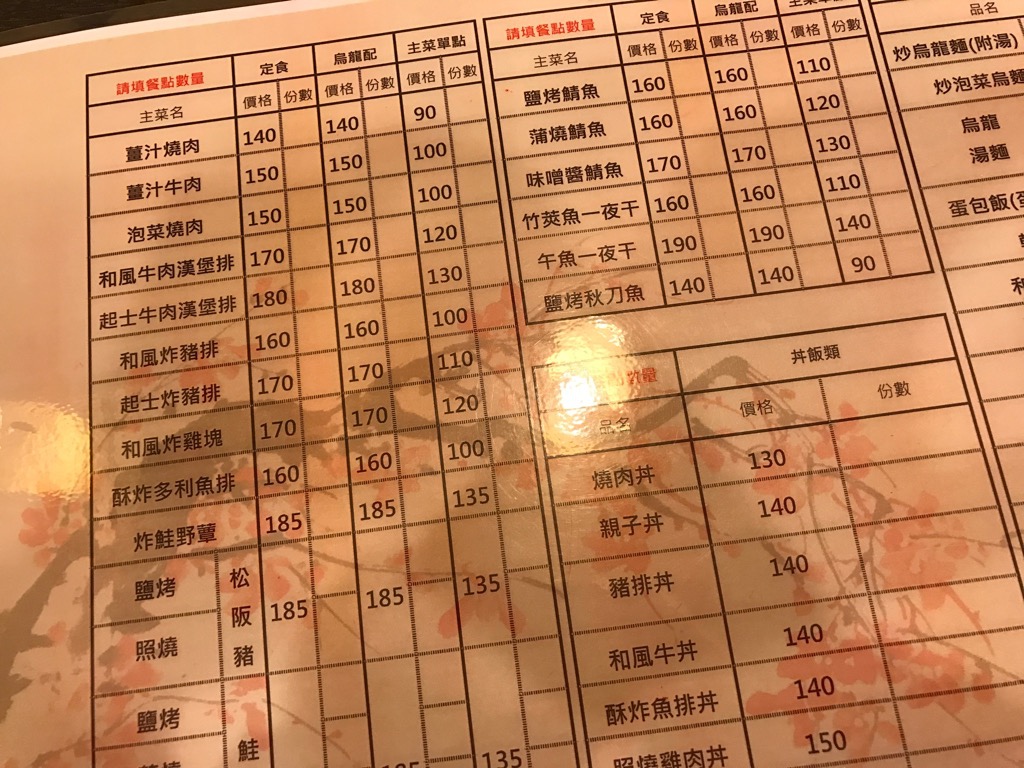 請填餐點數量 定食 烏龍配 主菜單點
主菜名 價格 份數 價格 份數 價格 份數
薑汁燒肉 140 140 90
薑汁牛肉 150 150 100
泡菜燒肉 150 150 100
和風牛肉漢堡排 170 170 120
起士牛肉漢堡排 180 180 130
和風炸豬排 160 160 100
起士炸豬排 170 170 110
和風炸雞塊 170 170 120
酥炸多利魚排 160 160 100
炸鮭野蕈 185 185 135
鹽烤 松阪豬 185 185 135
照燒
鹽烤 鮭 135
請填餐點數量 定食 烏龍配 主菜單點
主菜名 價格 份數 價格 份數 價格 份數
鹽烤鯖魚 160 160 110
蒲燒鯖魚 160 160 120
味噌醬鯖魚 170 170 130
竹莢魚一夜干 160 160 110
午魚一夜干 190 190 140
鹽烤秋刀魚 140 140 90
數量 丼飯類
品名 價格 份數
燒肉丼 130
親子丼 140
豬排丼 140
和風牛丼 140
酥炸魚排丼 140
照燒雞肉丼 150
品名
炒烏龍麵(附湯)
炒泡菜烏龍
烏龍
湯麵
蛋包飯(蛋